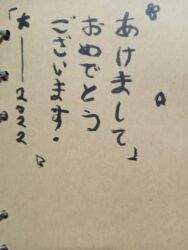 あけまして
おめでとう
ございます.
2022